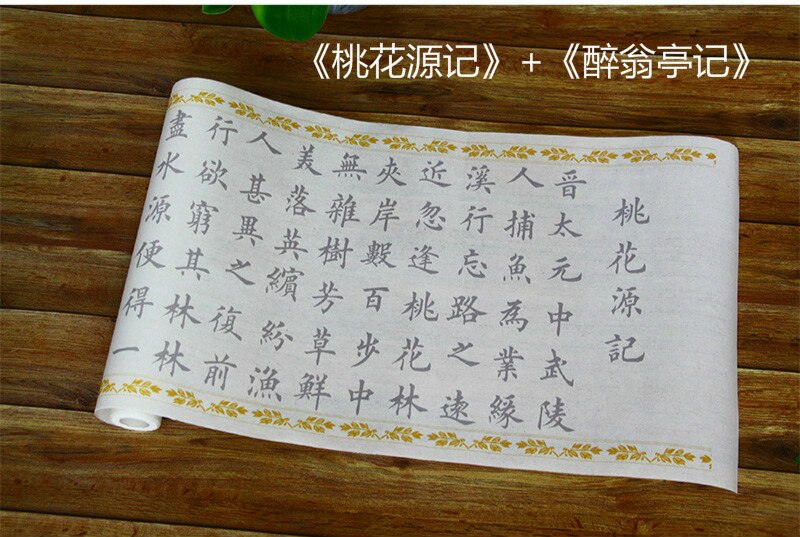 《桃花源记》+《醉翁亭记》
桃花源記
晋太元中武陵
人捕魚為業緣
溪行忘路之遠
近忽逢桃花林
夾岸數百步中
無雜樹芳草鮮
美落英繽紛漁
人甚異之復前
行欲窮其林林
盡水源便得一